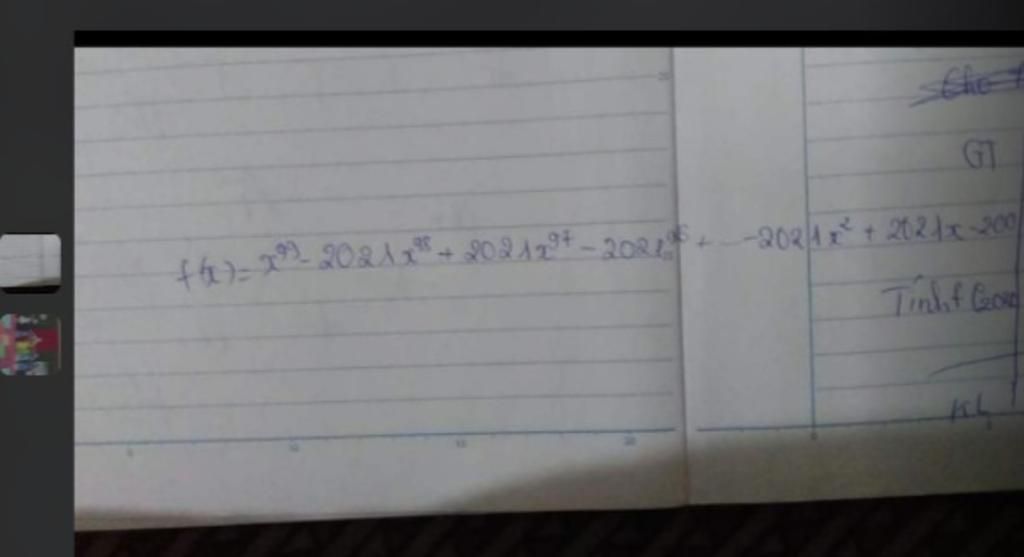 GT
f(x) = x⁹⁹ - 2021x⁹⁸ + 2021x⁹⁷ - 2021x⁹⁶ + ... - 2021x² + 2021x - 200
Tính f(
KL